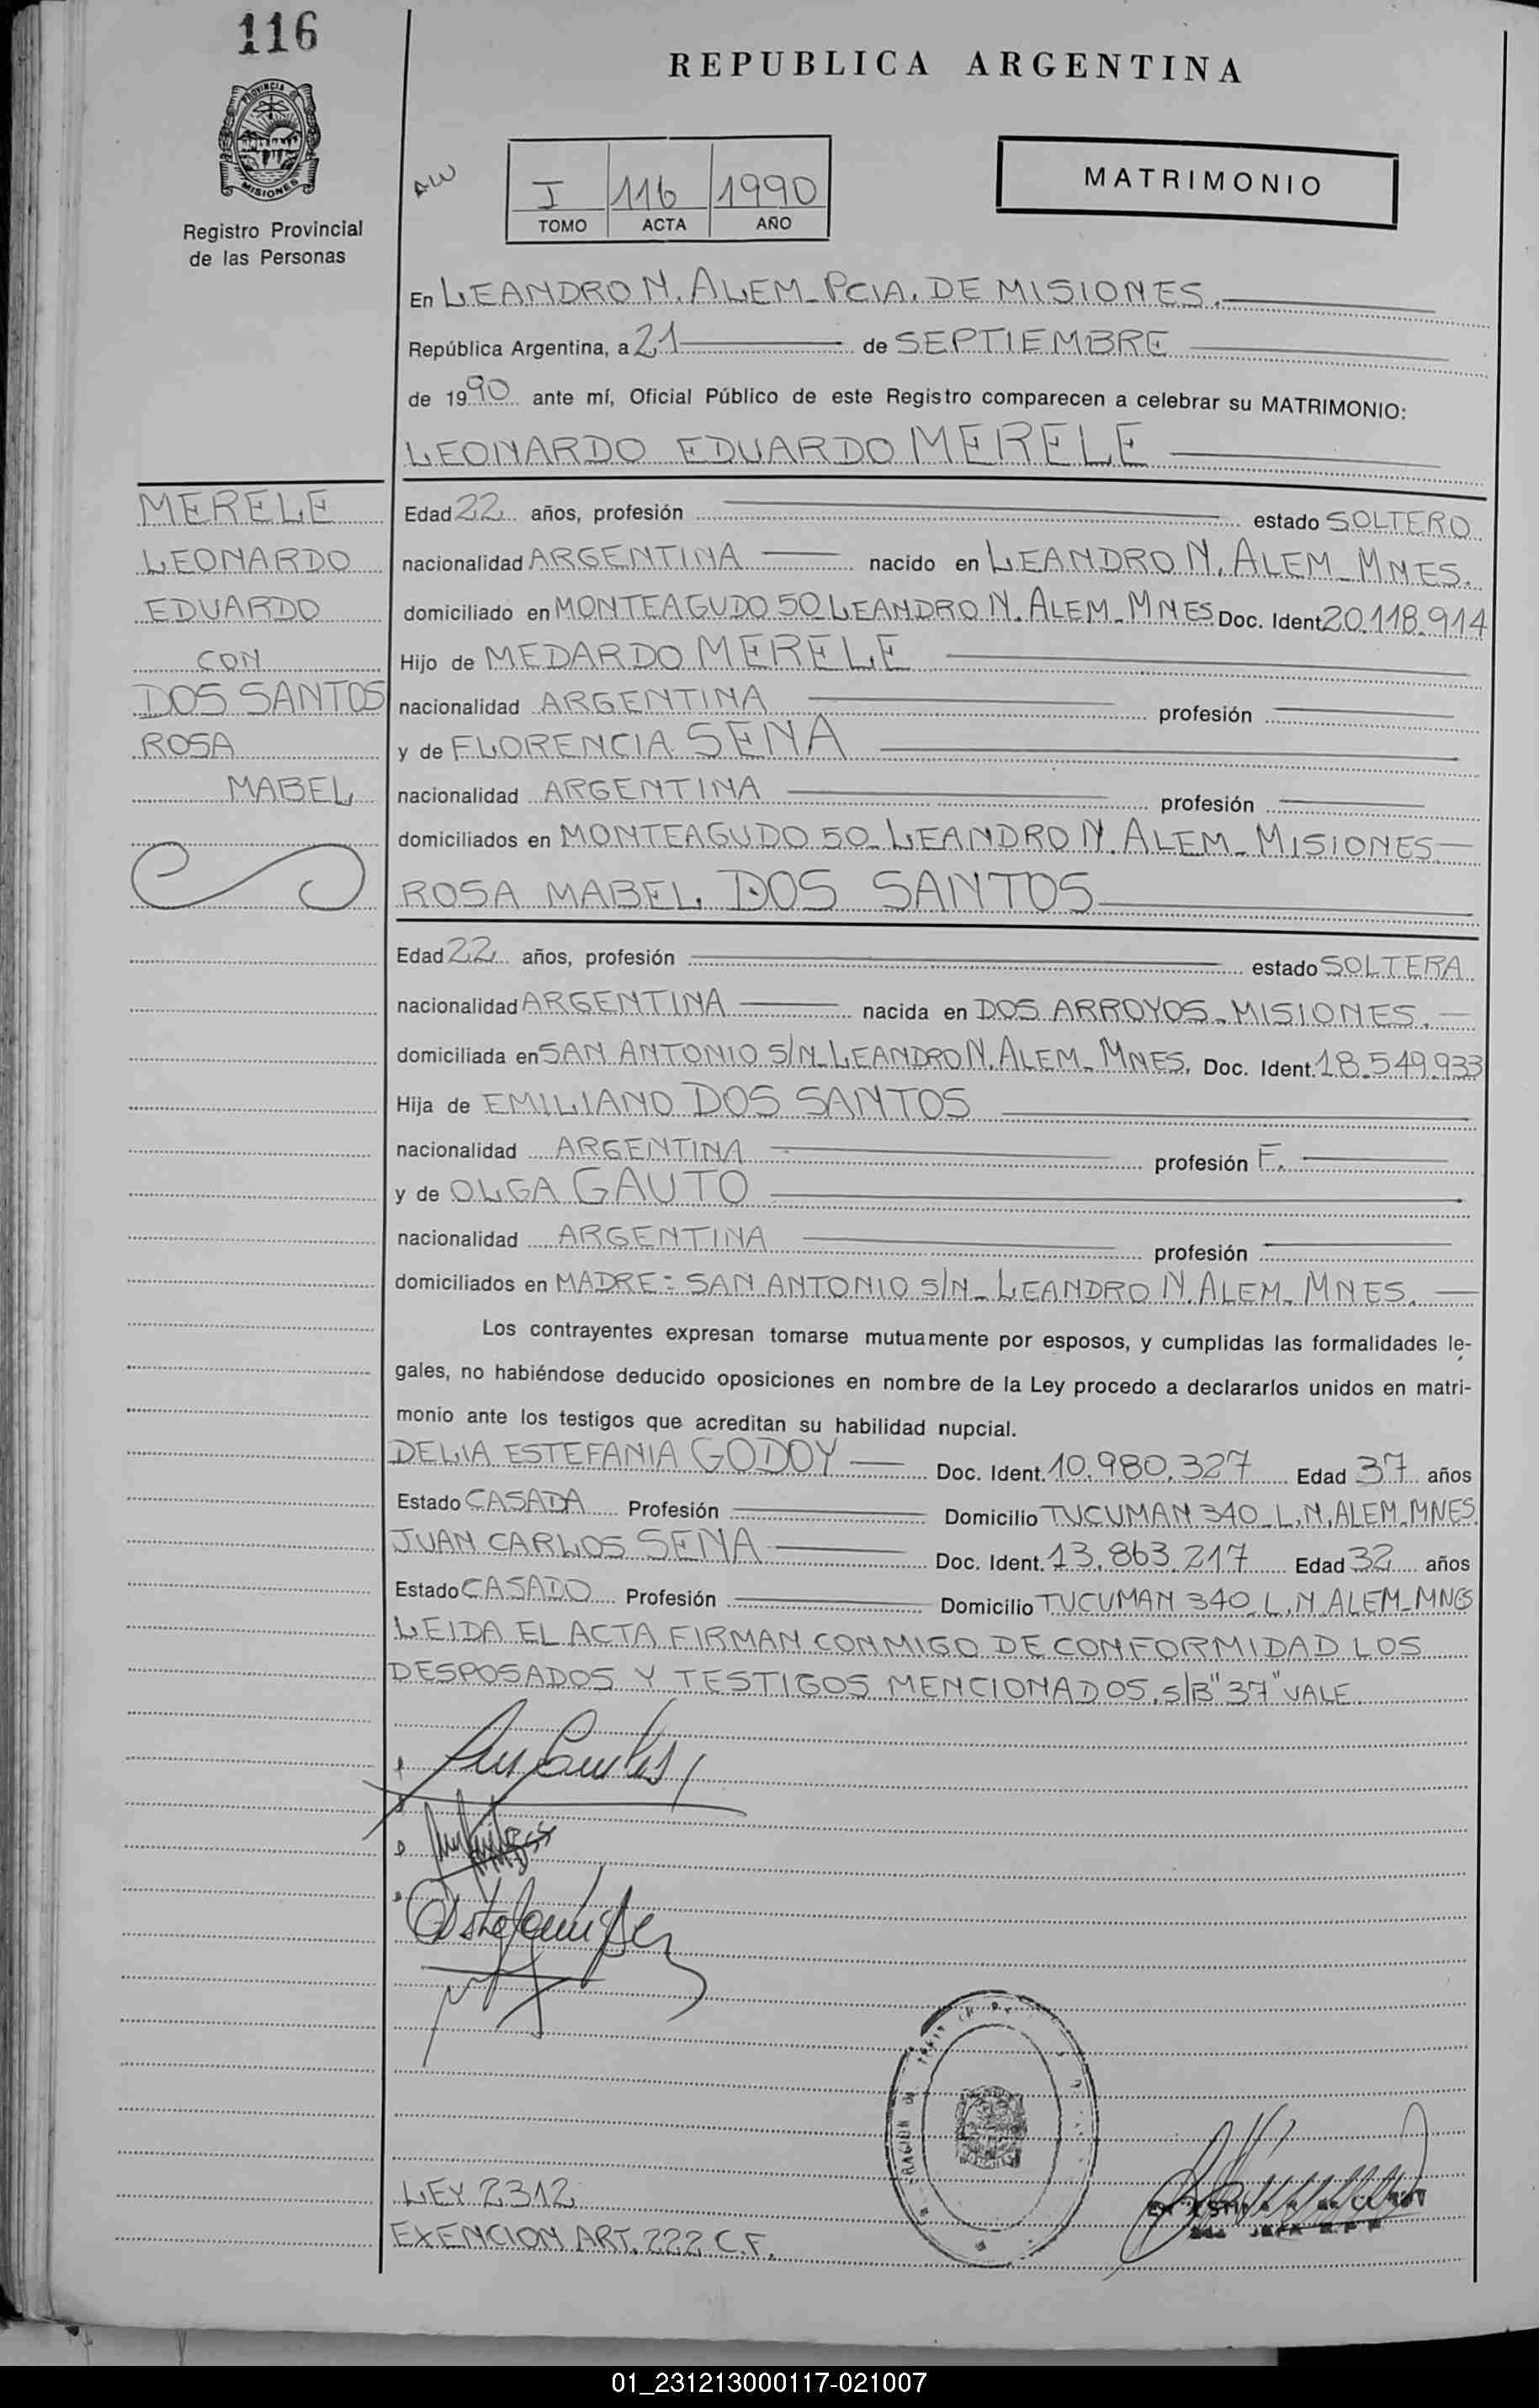 116
PROVINCIA DE
MISIONES
Registro Provincial
de las Personas
REPUBLICA ARGENTINA
I 116 1990
TOMO ACTA AÑO
MATRIMONIO
En LEANDRO N. ALEM_PCIA. DE MISIONES.
República Argentina, a 21 de SEPTIEMBRE
de 1990 ante mí, Oficial Público de este Registro comparecen a celebrar su MATRIMONIO:
LEONARDO EDUARDO MERELE
MERELE
LEONARDO
EDUARDO
CON
DOS SANTOS
ROSA
MABEL
Edad 22 años, profesión estado SOLTERO
nacionalidad ARGENTINA nacido en LEANDRO N. ALEM_MNES.
domiciliado en MONTEAGUDO 50_LEANDRO N. ALEM_MNES. Doc. Ident. 20.118.914
Hijo de MEDARDO MERELE
nacionalidad ARGENTINA profesión
y de FLORENCIA SENA
nacionalidad ARGENTINA profesión
domiciliados en MONTEAGUDO 50_LEANDRO N. ALEM_MISIONES
ROSA MABEL DOS SANTOS
Edad 22 años, profesión estado SOLTERA
nacionalidad ARGENTINA nacida en DOS ARROYOS_MISIONES.
domiciliada en SAN ANTONIO S/N_LEANDRO N. ALEM_MNES. Doc. Ident. 18.549.933
Hija de EMILIANO DOS SANTOS
nacionalidad ARGENTINA profesión F.
y de OLGA GAUTO
nacionalidad ARGENTINA profesión
domiciliados en MADRE= SAN ANTONIO S/N_LEANDRO N. ALEM_MNES.
Los contrayentes expresan tomarse mutuamente por esposos, y cumplidas las formalidades le-
gales, no habiéndose deducido oposiciones en nombre de la Ley procedo a declararlos unidos en matri-
monio ante los testigos que acreditan su habilidad nupcial.
DELIA ESTEFANIA GODOY Doc. Ident. 10.980.327 Edad 37 años
Estado CASADA Profesión Domicilio TUCUMAN 340_L.N.ALEM_MNES.
JUAN CARLOS SENA Doc. Ident. 13.863.217 Edad 32 años
Estado CASADO Profesión Domicilio TUCUMAN 340_L.N.ALEM_MNES
LEIDA EL ACTA FIRMAN CONMIGO DE CONFORMIDAD LOS
DESPOSADOS Y TESTIGOS MENCIONADOS. S/B "37" VALE.
LEY 2312
EXENCION ART. 222 C.F.
01_231213000117-021007